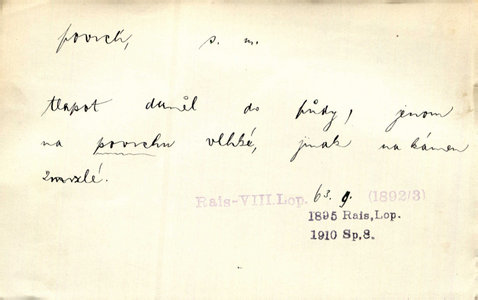 povrch, s. m.
tlapot duněl do půdy, jenom
na povrchu vlhké, jinak na kámen
zmrzlé.
Rais-VIII.Lop. 63. 9. (1892/3)
1895 Rais,Lop.
1910 Sp.8.